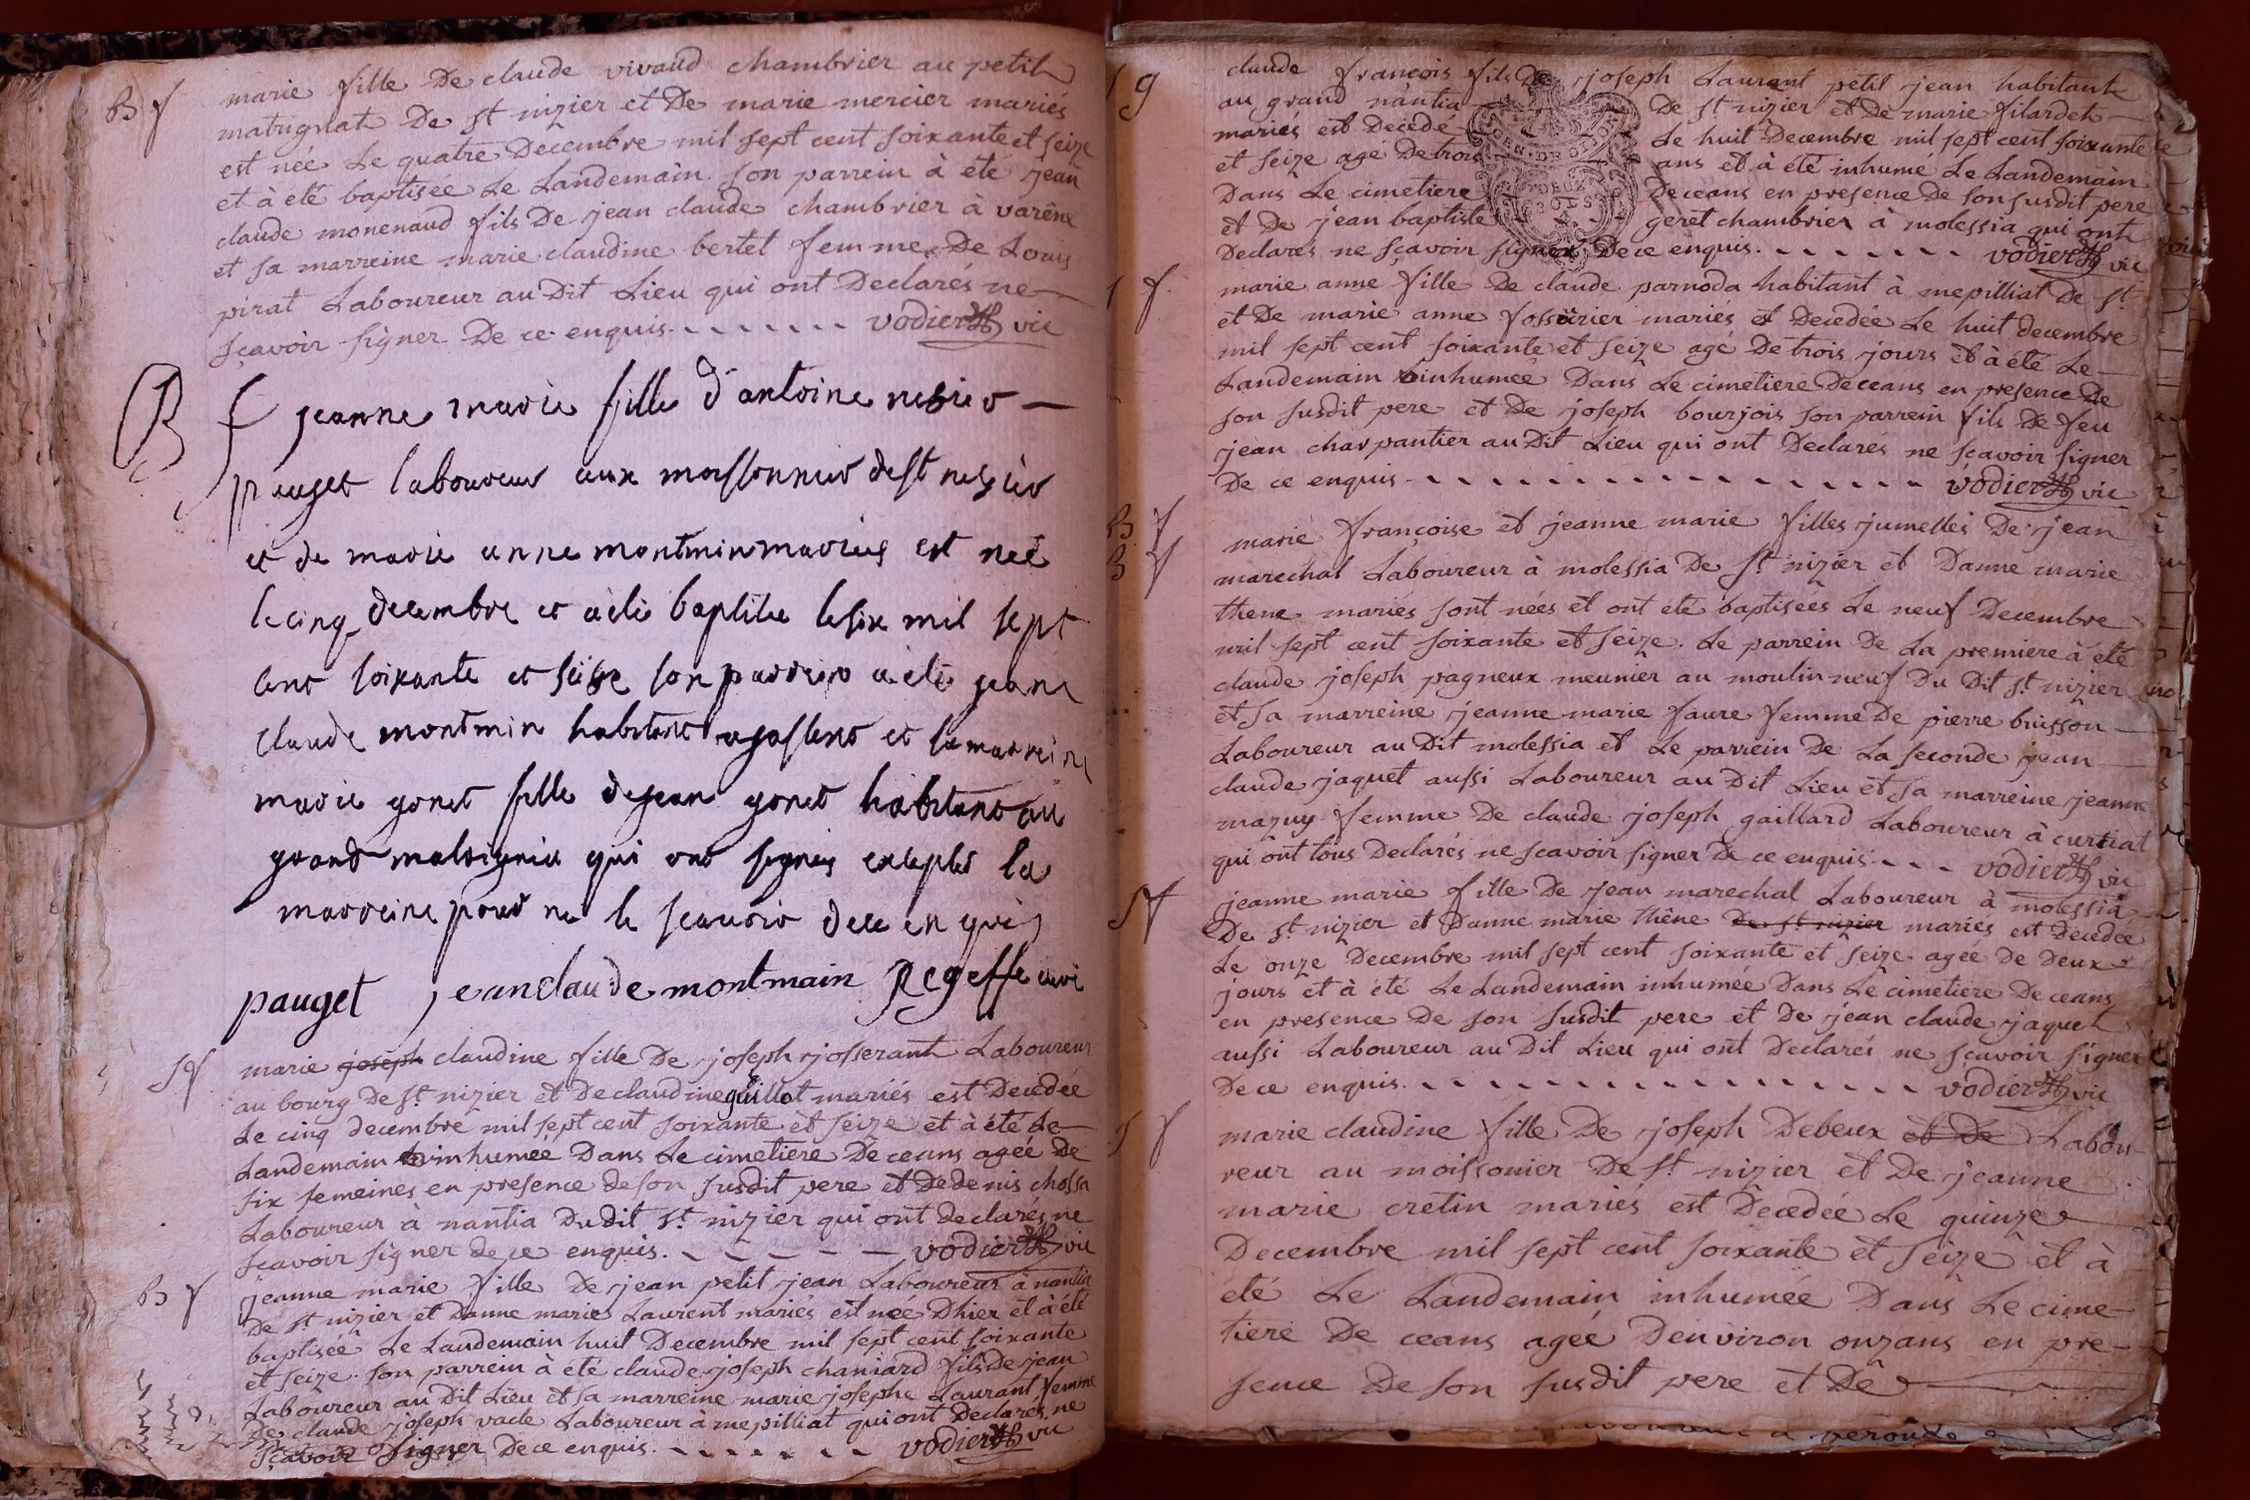 B f
marie fille De claude vivaud chambrier au petit
matrignat De st nizier et De marie mercier mariés
est née Le quatre Decembre mil sept cent soixante et seize
et à eté baptisée Le Landemain son parrein à eté jean
claude monenaud fils De jean claude chambrier à varêne
et sa marreine marie claudine bertet femme De Louis
pirat Laboureur au Dit Lieu qui ont Declarés ne
sçavoir signer De ce enquis. vodier vic
B f jeanne marie fille d'antoine nesier
pauget laboureur aux moissonnier de st nesier
et de marie anne montmin mariés est neé
le cinq decembre et a eté baptisee le six mil sept
cent soixante et seize son parrein a eté jean
claude montmin habitant a et sa marreine
marie gonet fille de jean gonet habitant au
grand qui ont signés exceptés la
marreine pour ne le scavoir de ce enquis
pauget jean claude montmain Regeffe curé
S f
marie joseph claudine fille De joseph josserant Laboureur
au bourg De st. nizier et De claudine guillot mariés est Decedée
Le cinq decembre mil sept cent soixante et seize et à eté Le
Landemain inhumée Dans Le cimetiere De ceans agéé De
six semeines en presence de son susdit pere et De denis chossa
Laboureur à nantia Dudit st. nizier qui ont declarés ne
sçavoir signer de ce enquis. vodier vic
B f
jeanne marie fille De jean petit jean Laboureur à nantia
De st. nizier et Danne marie Laurent mariés est neé Dhier et à été
baptisée Le Landemain huit Decembre mil sept cent soixante
et seize. son parrein à été claude joseph chaniard fils De jean
Laboureur au Dit Lieu et sa marreine marie josephe Laurant femme
De claude joseph vacle Laboureur à mepilliat qui ont Declarés ne
sçavoir signer De ce enquis. vodier vic
S g
claude francois fils De joseph Laurant petit jean habitant
au grand nantia De st nizier et de marie filardet
mariés est Decedé Le huit Decembre mil sept cent soixante
et seize agé De trois ans et à été inhumé Le Landemain
Dans Le cimetiere De ceans en presence De son susdit pere
et De jean baptiste geret chambrier à molessia qui ont
Declarés ne sçavoir signer De ce enquis. vodier vic
GEN. DE DIJON
DEUX
SOLS
S f
marie anne fille De claude parnoda habitant à mepilliat De st.
et De marie anne fossurier mariés est Decedée Le huit decembre
mil sept cent soixante et seize age De trois jours et à été Le
Landemain inhumée Dans Le cimetiere De ceans en presence De
son susdit pere et De joseph bourjois son parrein fils De feu
jean charpantier au Dit Lieu qui ont Declares ne sçavoir signer
De ce enquis vodier vic
B f
B f
marie francoise et jeanne marie filles jumelles De jean
marechal Laboureur à molessia De st. nizier et Danne marie
thene mariés sont nées et ont été baptisées Le neuf Decembre
mil sept cent soixante et seize. Le parrein De La premiere à été
claude joseph pagneux meunier au moulin neuf Du Dit st. nizier
et sa marreine jeanne marie faure femme De pierre buisson
Laboureur au Dit molessia et Le parrein De La seconde jean
claude jaquet aussi Laboureur au Dit Lieu et sa marreine jeanne
mazuy femme De claude joseph gaillard Laboureur à curtiat
qui ont tous Declarés ne scavoir signer De ce enquis. vodier vic
S f
jeanne marie fille De jean marechal Laboureur à molessia
De st. nizier et Danne marie thêne De st nizier mariés est Decedée
Le onze Decembre mil sept cent soixante et seize agée De Deux
jours et à été Le Landemain inhumée Dans Le cimetiere De ceans
en presence De son susdit pere et De jean claude jaquet
aussi Laboureur au Dit Lieu qui ont Declarés ne sçavoir signer
De ce enquis. vodier vic
S f
marie claudine fille De joseph Debeux et De Labou-
reur au moissonier De st. nizier et De jeanne
marie cretin mariés est Decedée Le quinze
Decembre mil sept cent soixante et seize et à
eté Le Landemain inhumée Dans Le cime-
tiere De ceans agéé Denviron onzans en pre-
sence De son susdit pere et De